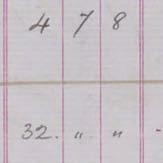 4 7 8
32. " "